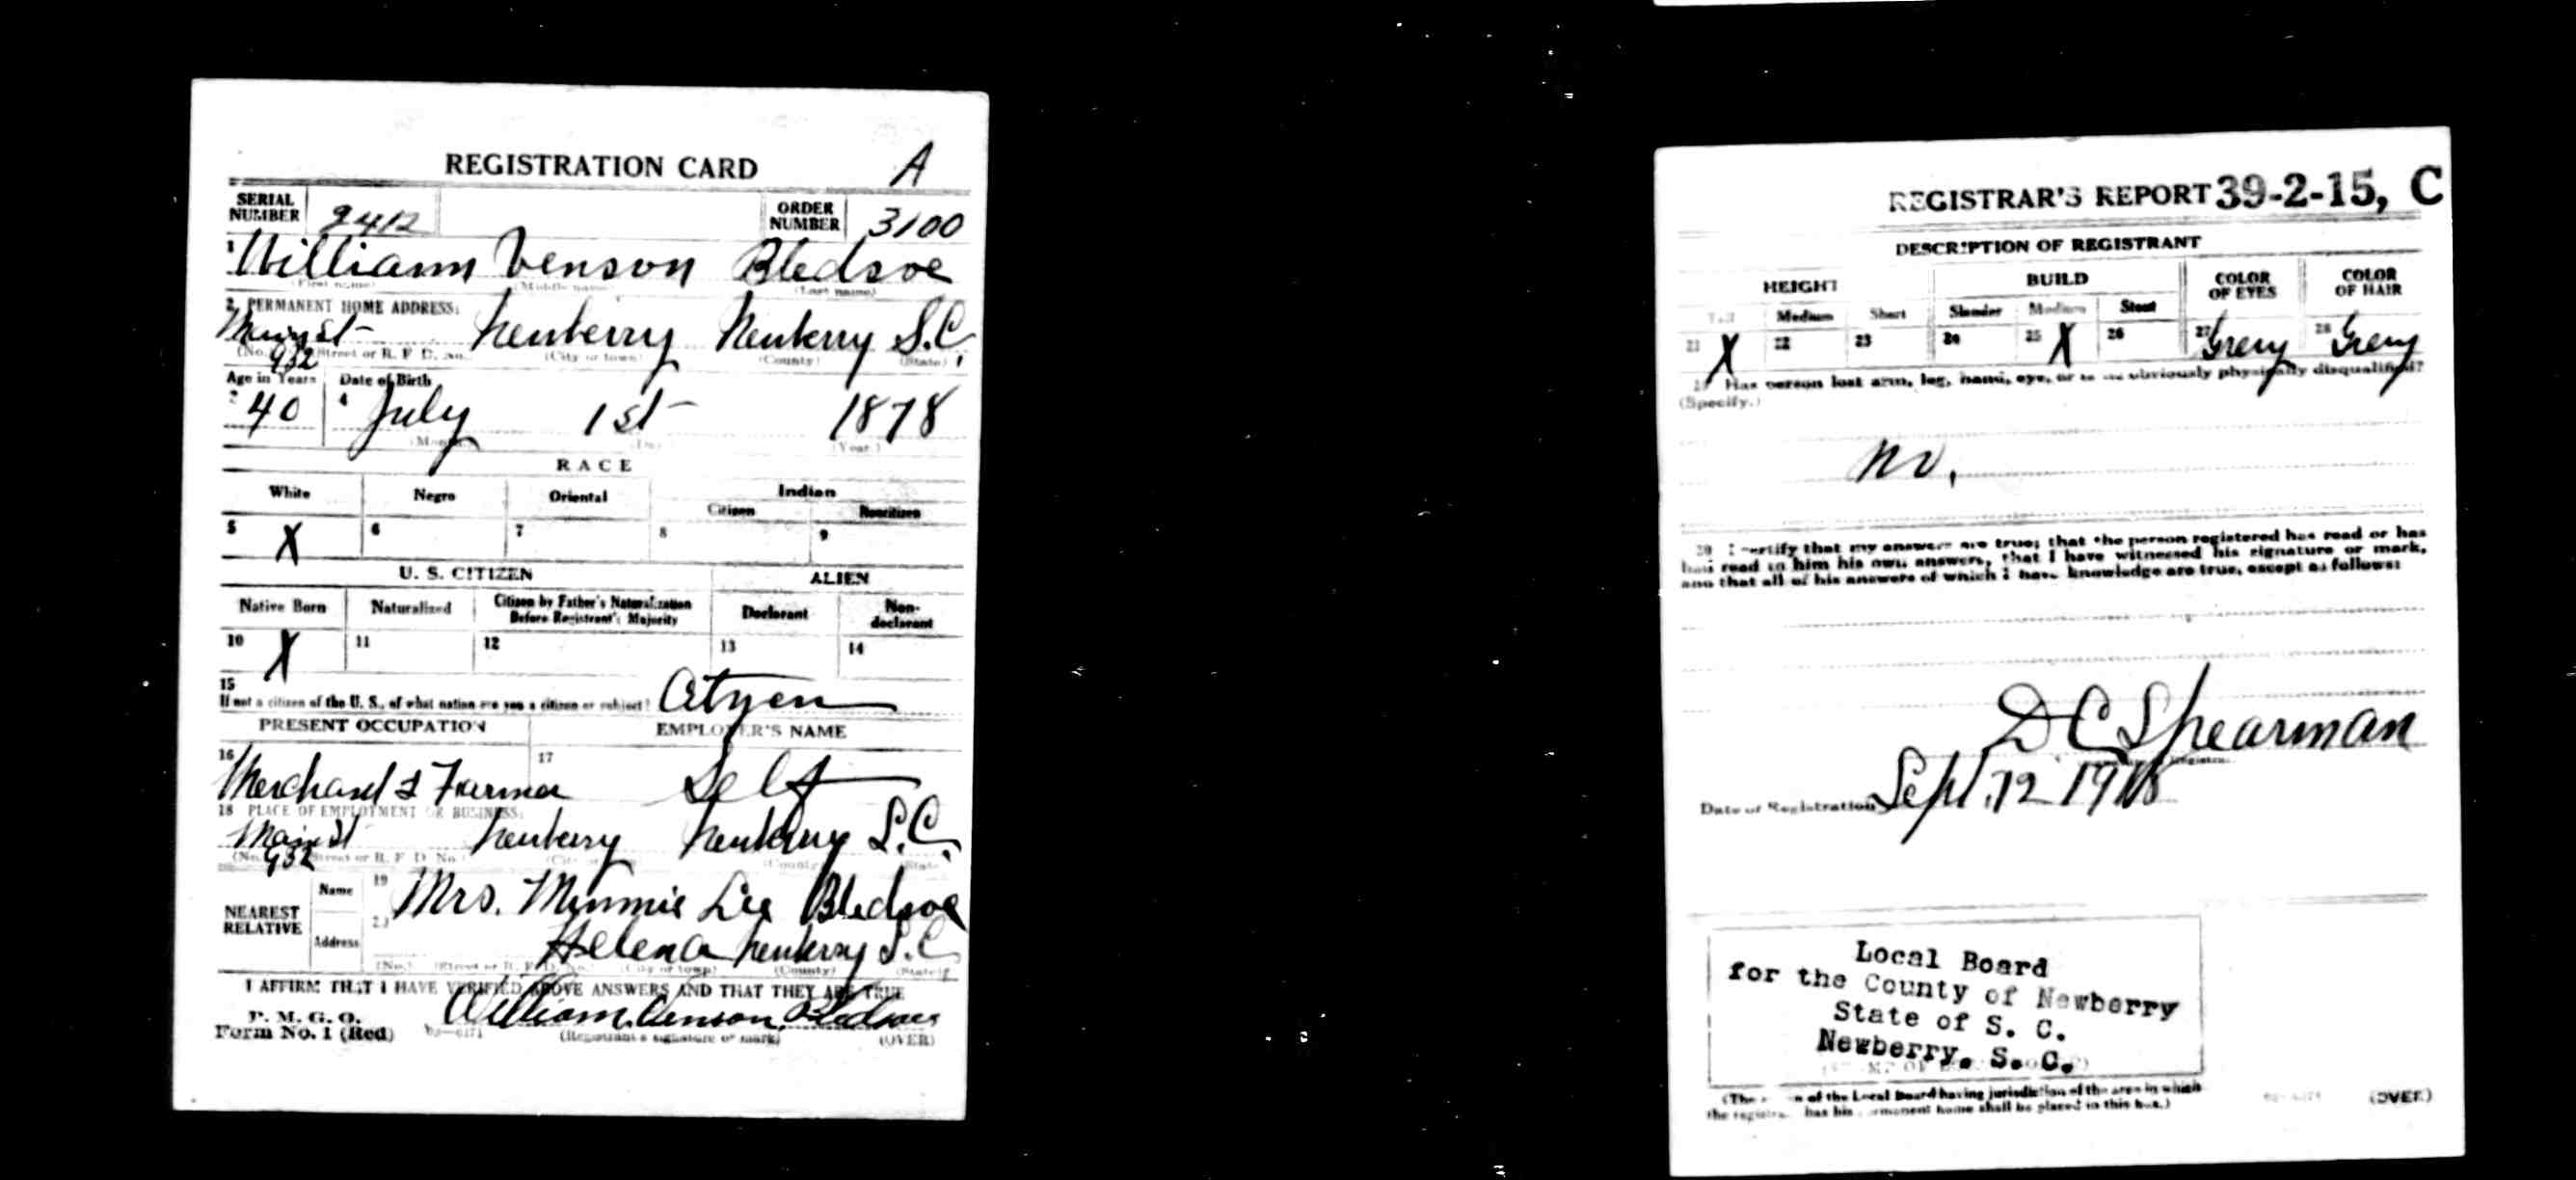 REGISTRATION CARD A
SERIAL NUMBER 2412 ORDER NUMBER 3100
1 William Venson Bledsoe
(First name) (Middle name) (Last name)
2 PERMANENT HOME ADDRESS:
Main st 932 Newberry Newberry S.C.
(No.) (Street or R. F. D. No.) (City or town) (County) (State)
Age in Years Date of Birth
3 40 4 July 1st 1878
(Month) (Day) (Year)
RACE
White Negro Oriental Indian
Citizen Noncitizen
5 X 6 7 8 9
U. S. CITIZEN ALIEN
Native Born Naturalized Citizen by Father's Naturalization Before Registrant's Majority Declarant Non-declarant
10 X 11 12 13 14
15
If not a citizen of the U. S., of what nation are you a citizen or subject? Cityen
PRESENT OCCUPATION EMPLOYER'S NAME
16 Merchant & Farmer 17 Self
18 PLACE OF EMPLOYMENT OR BUSINESS:
Main st 932 Newberry Newberry S.C.
(No.) (Street or R. F. D. No.) (City or town) (County) (State)
NEAREST RELATIVE
Name 19 Mrs. Minnie Lee Bledsoe
Address 20 Helena Newberry S.C
(No.) (Street or R. F. D. No.) (City or town) (County) (State)
I AFFIRM THAT I HAVE VERIFIED ABOVE ANSWERS AND THAT THEY ARE TRUE
P. M. G. O.
Form No. 1 (Red) William Venson Bledsoe
(Registrant's signature or mark) (OVER)
REGISTRAR'S REPORT 39-2-15, C
DESCRIPTION OF REGISTRANT
HEIGHT BUILD COLOR OF EYES COLOR OF HAIR
Tall Medium Short Slender Medium Stout
21 X 22 23 24 25 X 26 27 Grey 28 Grey
29 Has person lost arm, leg, hand, eye, or is he obviously physically disqualified?
(Specify.)
No.
30 I certify that my answers are true; that the person registered has read or has
had read to him his own answers, that I have witnessed his signature or mark,
and that all of his answers of which I have knowledge are true, except as follows:
D C Shearman
Date of Registration Sept. 12 1918
Local Board
for the County of Newberry
State of S. C.
Newberry, S. C.
(The of the Local Board having jurisdiction of the area in which
the registrant has his permanent home shall be placed in this box.)
(OVER)